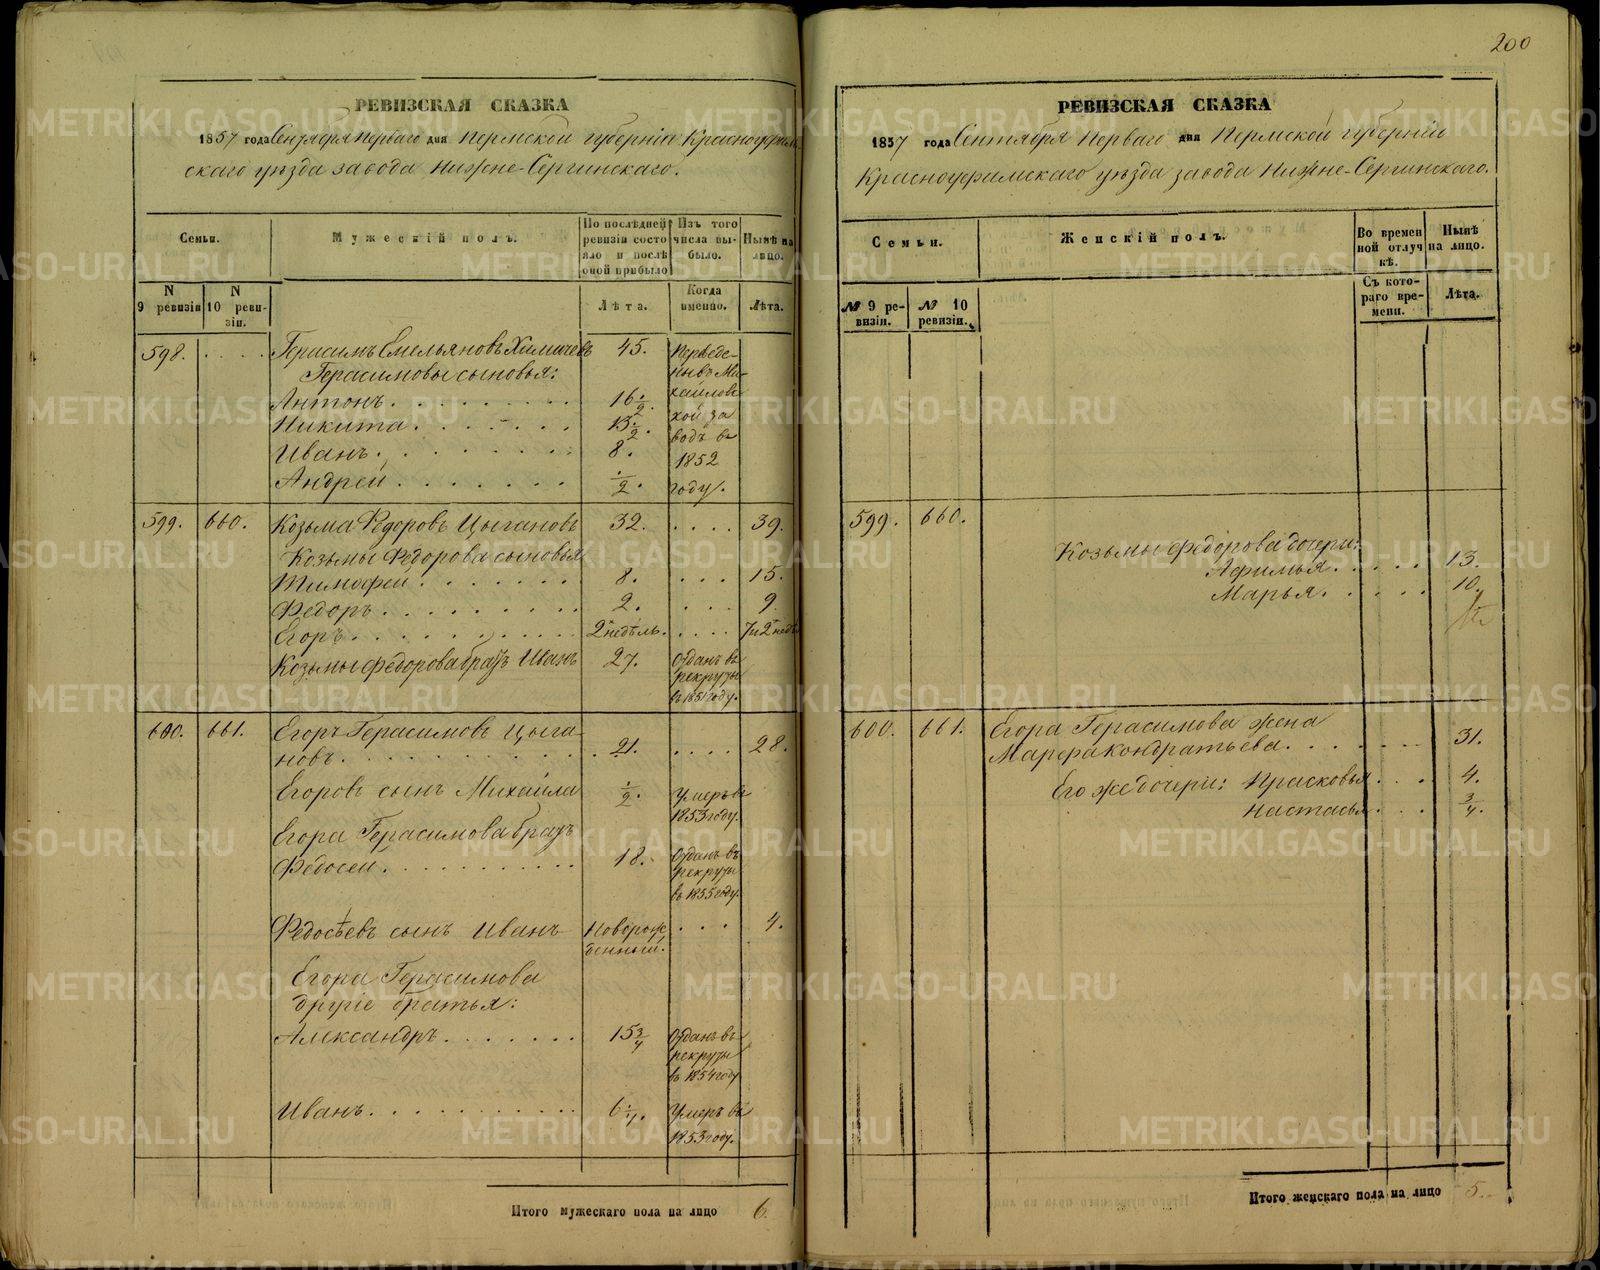 200
РЕВИЗСКАЯ СКАЗКА
1857 года Сентября Перваго дня Пермской губерніи Красноуфим-
скаго уѣзда завода Нижне-Сергинскаго.
Семьи.
Мужескій полъ.
По послѣдней ревизіи состояло и послѣ оной прибыло
Изъ того числа выбыло.
Нынѣ на лицо.
N 9 ревизіи
N 10 ревизіи.
Лѣта.
Когда именно.
Лѣта.
598. .... Герасимъ Емельяновъ Химичевъ 45. Переведены въ Михайловской заводъ въ 1852 году.
Герасимовы сыновья:
Антонъ. 16 1/2.
Никита. 13 1/2.
Иванъ. 8.
Андрей. 1/2.
599. 660. Козьма Федоровъ Цыгановъ 32. .... 39.
Козьмы Федорова сыновья
Тимофей. 8. ... 15.
Федоръ. 2. ... 9.
Егоръ. 2 недѣль. .... 7 и 2 недѣ
Козьмы Федорова братъ Иванъ 27. Отданъ въ рекруты въ 1851 году.
600. 661. Егоръ Герасимовъ Цыга-
новъ. 21. .... 28.
Егоровъ сынъ Михайла 1/2. Умеръ въ 1853 году.
Егора Герасимова братъ
Федосей. 18. Отданъ въ рекруты въ 1855 году.
Федосѣевъ сынъ Иванъ Новорожденный. ... 4.
Егора Герасимова
другіе братья:
Александръ. 15 3/4 Отданъ въ рекруты въ 1854 году
Иванъ. 6 1/4. Умеръ въ 1853 году.
Итого мужескаго пола на лицо 6.
РЕВИЗСКАЯ СКАЗКА
1857 года Сентября Перваго дня Пермской губерніи
Красноуфимскаго уѣзда завода Нижне-Сергинскаго.
Семьи.
Женскій полъ.
Во временной отлучкѣ.
Нынѣ на лицо.
№ 9 ревизіи.
№ 10 ревизіи.
Съ котораго времени.
Лѣта.
599. 660.
Козьмы Федорова дочери:
Афимья. 13.
Марья. 10.
600. 661. Егора Герасимова жена
Марфа Кондратьева. 31.
Его же дочери: Прасковья 4.
Настасья. 3/4.
Итого женскаго пола на лицо 5.
METRIKI.GASO-URAL.RU